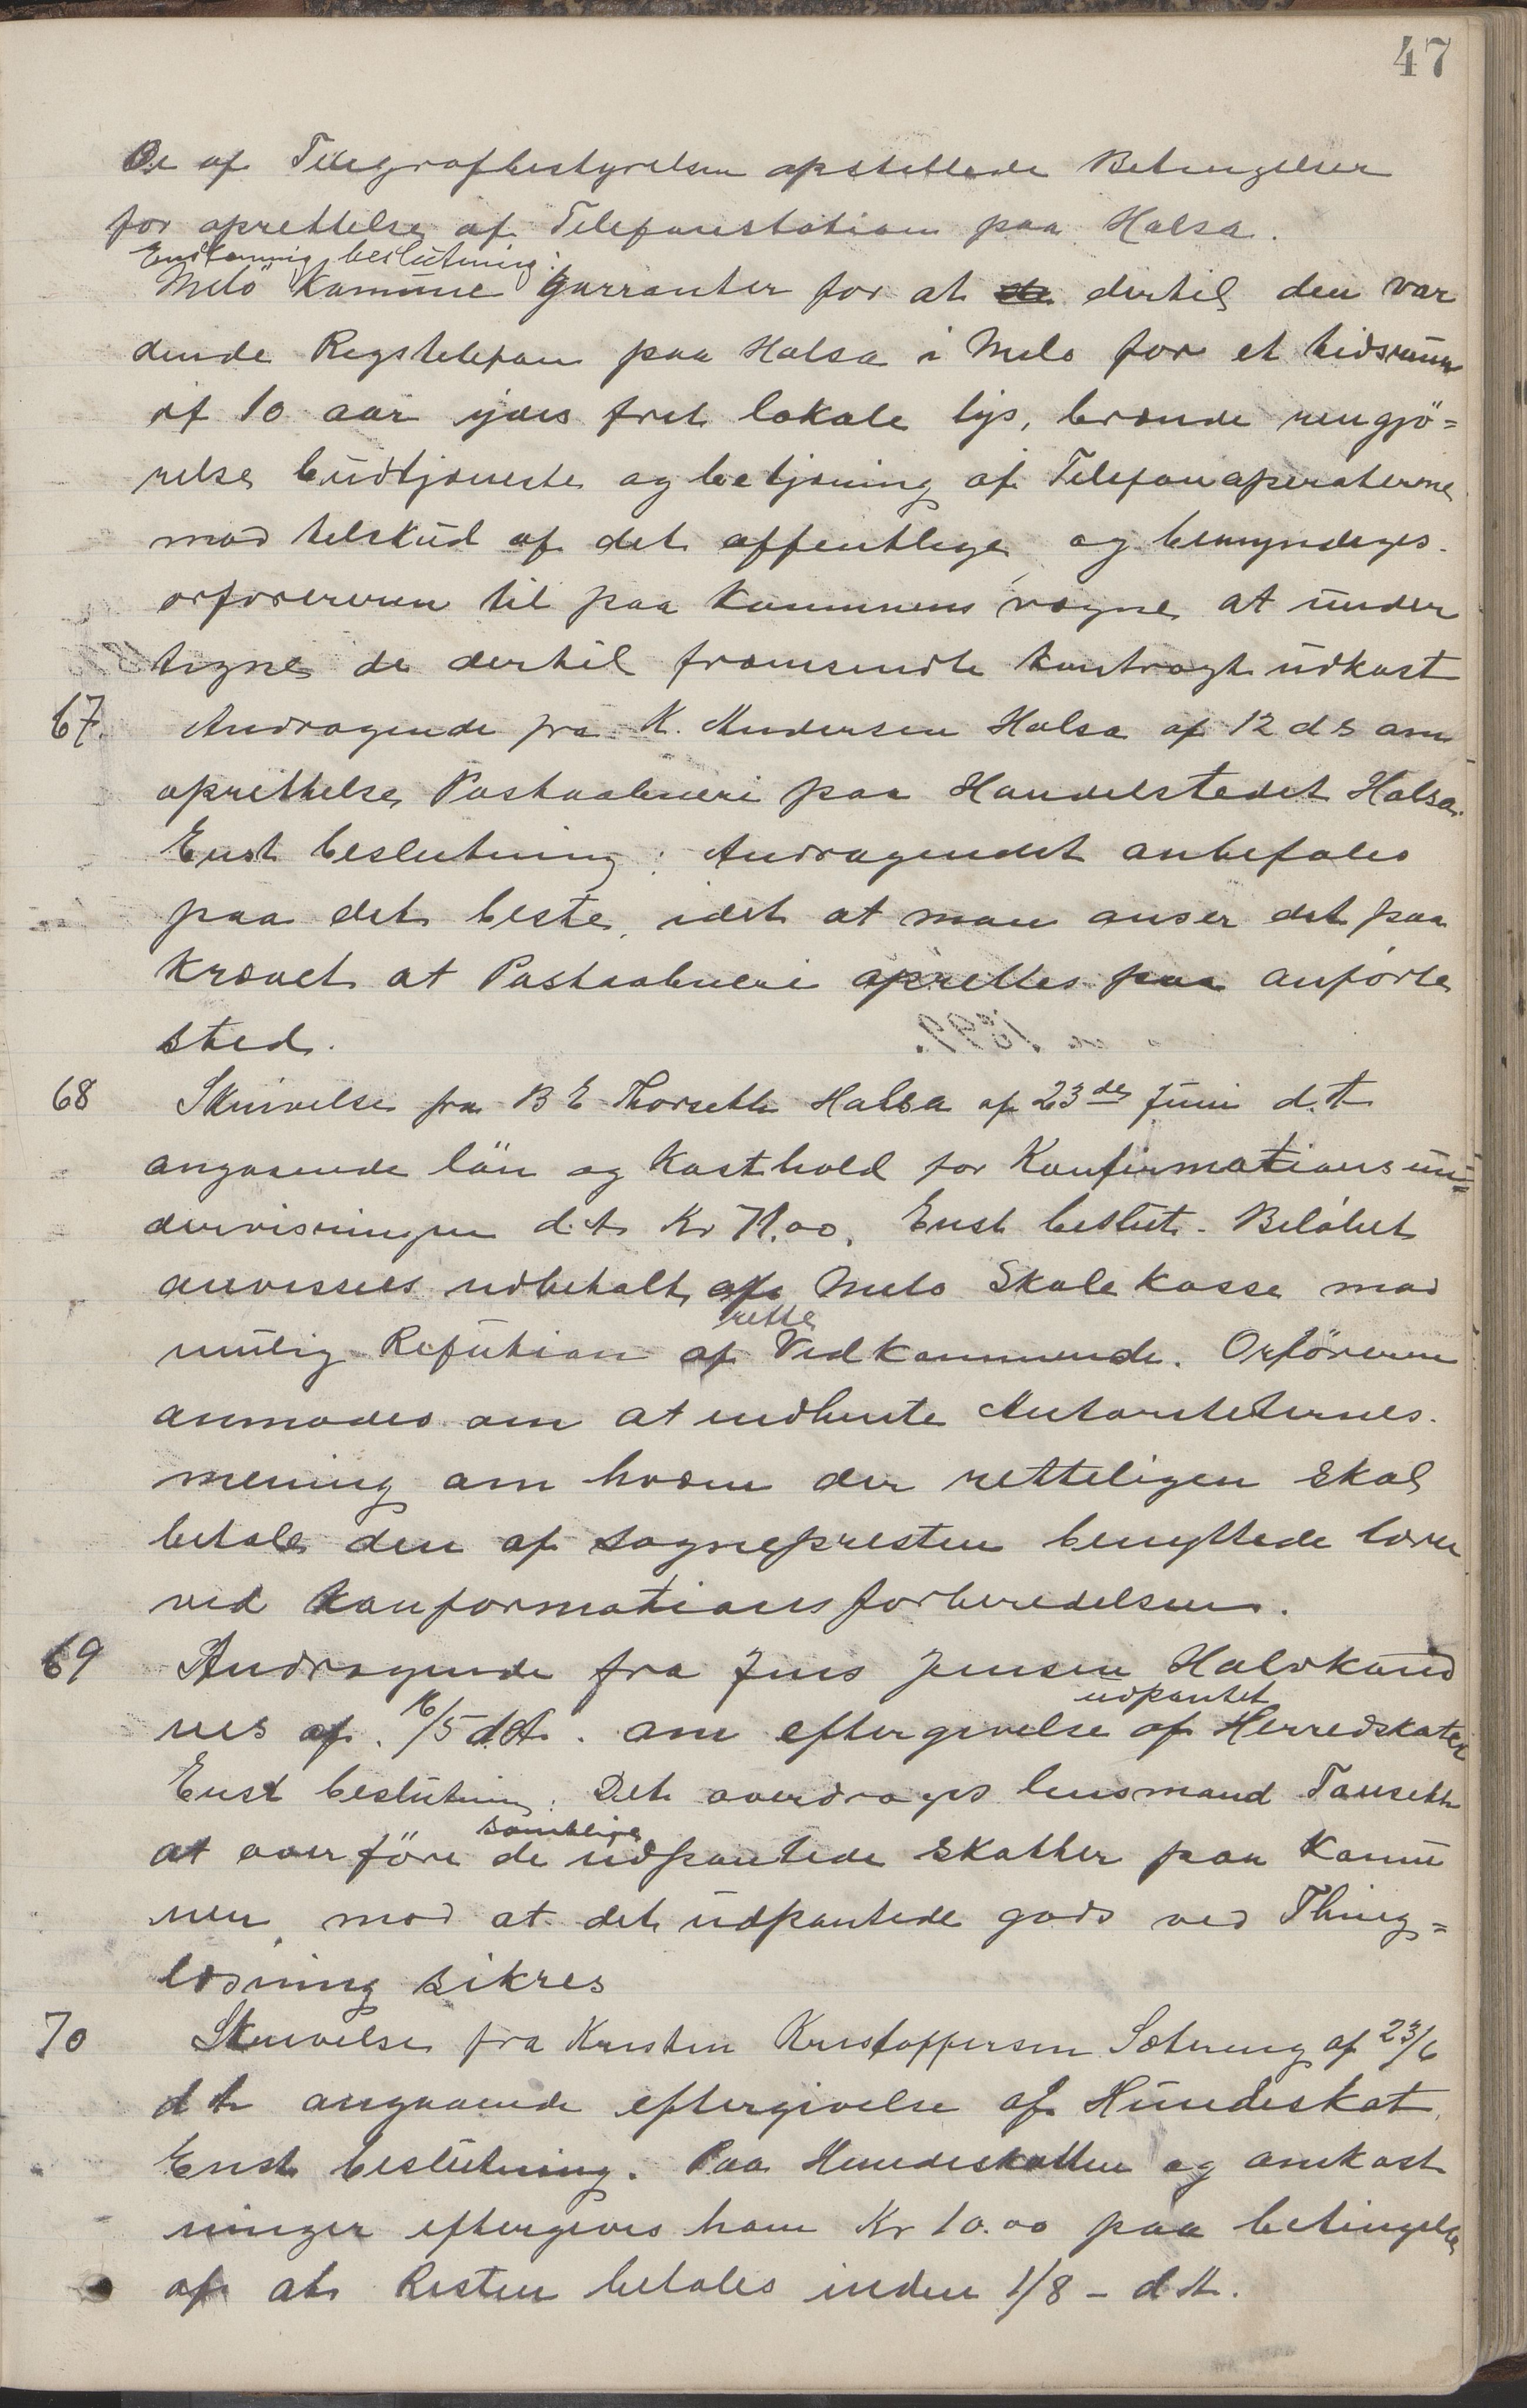 47
De af Telegrafbestyrelsen opstellede Betingelser
for oprettelse af Telefonstation paa Halsa.
Enstemmig beslutning:
Melö Kommune garranter for at dertil den vor
dende Rigstelefon paa Halsa i Melö for et tidsrum
af 10 aar ydes frit lokale lys, brænde rengjö=
relse budtjeneste og betjening af Telefonaperaterne
mod tilskud af det offentlige, og bemyndiges
orföreren til paa Kommunens vægne at under
tegne de dertil fremsendte kontragt udkast
67. Andragende fra K. Andersen Halsa af 12 ds om
oprettelse Postaabneri paa Handelstedet Halsa.
Enst beslutning: Andragendet anbefales
paa det beste, idet at man anser det paa
krævet at Postaabneri oprettes paa anförte
sted.
68 Skrivelse fra B E Thorseth Halsa af 23de Juni d.A
angaaende lön og Kosthold for Konfirmationsun=
dervisningen d.A. Kr 71.00. Enst beslut. Belöbet
anvisses udbetalt af Melö Skolekasse mod
mulig Refution af rette Vedkommende. Orföreren
anmodes om at indhente Autoriteternes
mening om hvem der retteligen skal
betale den af sognepresten benyttede lærer
ved Konformationsforberedelsen.
69 Andragende fra Jens Jensen Halvkand
nes af 16/5 d.A. om eftergivelse af udpantet Herredskatter
Enst beslutning: Det overdrages lensmand Tanseth
at overföre de samtlige udpantede skatter paa Komu
nen, mod at det udpantede gods ved Thing=
læsning sikres
70 Skrivelse fra Kristen Kristoffersen Sætring af 23/6
d A angaaende eftergivelse af Hundeskat.
Enst beslutning. Paa Hundeskatten og omkost
ninger eftergives ham Kr 10.00 paa betingelse
af at Resten betales inden 1/8 - d A.